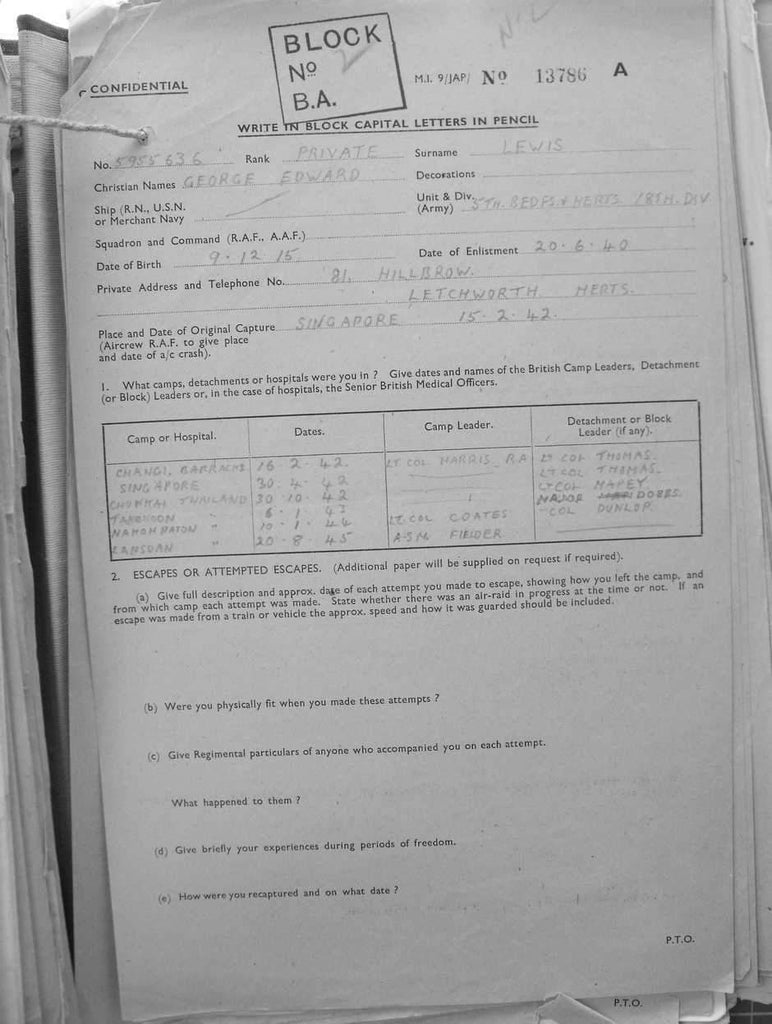 NIL
BLOCK
No 2
B.A.
CONFIDENTIAL
M.I. 9/JAP/ No 13786 A
WRITE IN BLOCK CAPITAL LETTERS IN PENCIL
No. 5955636 Rank PRIVATE Surname LEWIS
Christian Names GEORGE EDWARD Decorations
Ship (R.N., U.S.N.
or Merchant Navy
Unit & Div.
(Army) 5TH. BEDFS & HERTS 18TH. DIV
Squadron and Command (R.A.F., A.A.F.)
Date of Birth 9.12.15 Date of Enlistment 20.6.40
Private Address and Telephone No. 81, HILLBROW.
LETCHWORTH HERTS.
Place and Date of Original Capture SINGAPORE 15.2.42.
(Aircrew R.A.F. to give place
and date of a/c crash).
1. What camps, detachments or hospitals were you in ? Give dates and names of the British Camp Leaders, Detachment
(or Block) Leaders or, in the case of hospitals, the Senior British Medical Officers.
Camp or Hospital. Dates. Camp Leader. Detachment or Block
Leader (if any).
CHANGI, BARRACKS 16.2.42. LT COL HARRIS RA LT COL THOMAS.
SINGAPORE 30.4.42 LT COL THOMAS.
THAILAND 30.10.42 LT COL
" 6.1.43 MAJOR DOBBS.
" 10.1.44 LT. COL COATES COL DUNLOP.
" 20.8.45 A.S.M. FIELDER
2. ESCAPES OR ATTEMPTED ESCAPES. (Additional paper will be supplied on request if required).
(a) Give full description and approx. date of each attempt you made to escape, showing how you left the camp, and
from which camp each attempt was made. State whether there was an air-raid in progress at the time or not. If an
escape was made from a train or vehicle the approx. speed and how it was guarded should be included.
(b) Were you physically fit when you made these attempts ?
(c) Give Regimental particulars of anyone who accompanied you on each attempt.
What happened to them ?
(d) Give briefly your experiences during periods of freedom.
(e) How were you recaptured and on what date ?
P.T.O.
P.T.O.